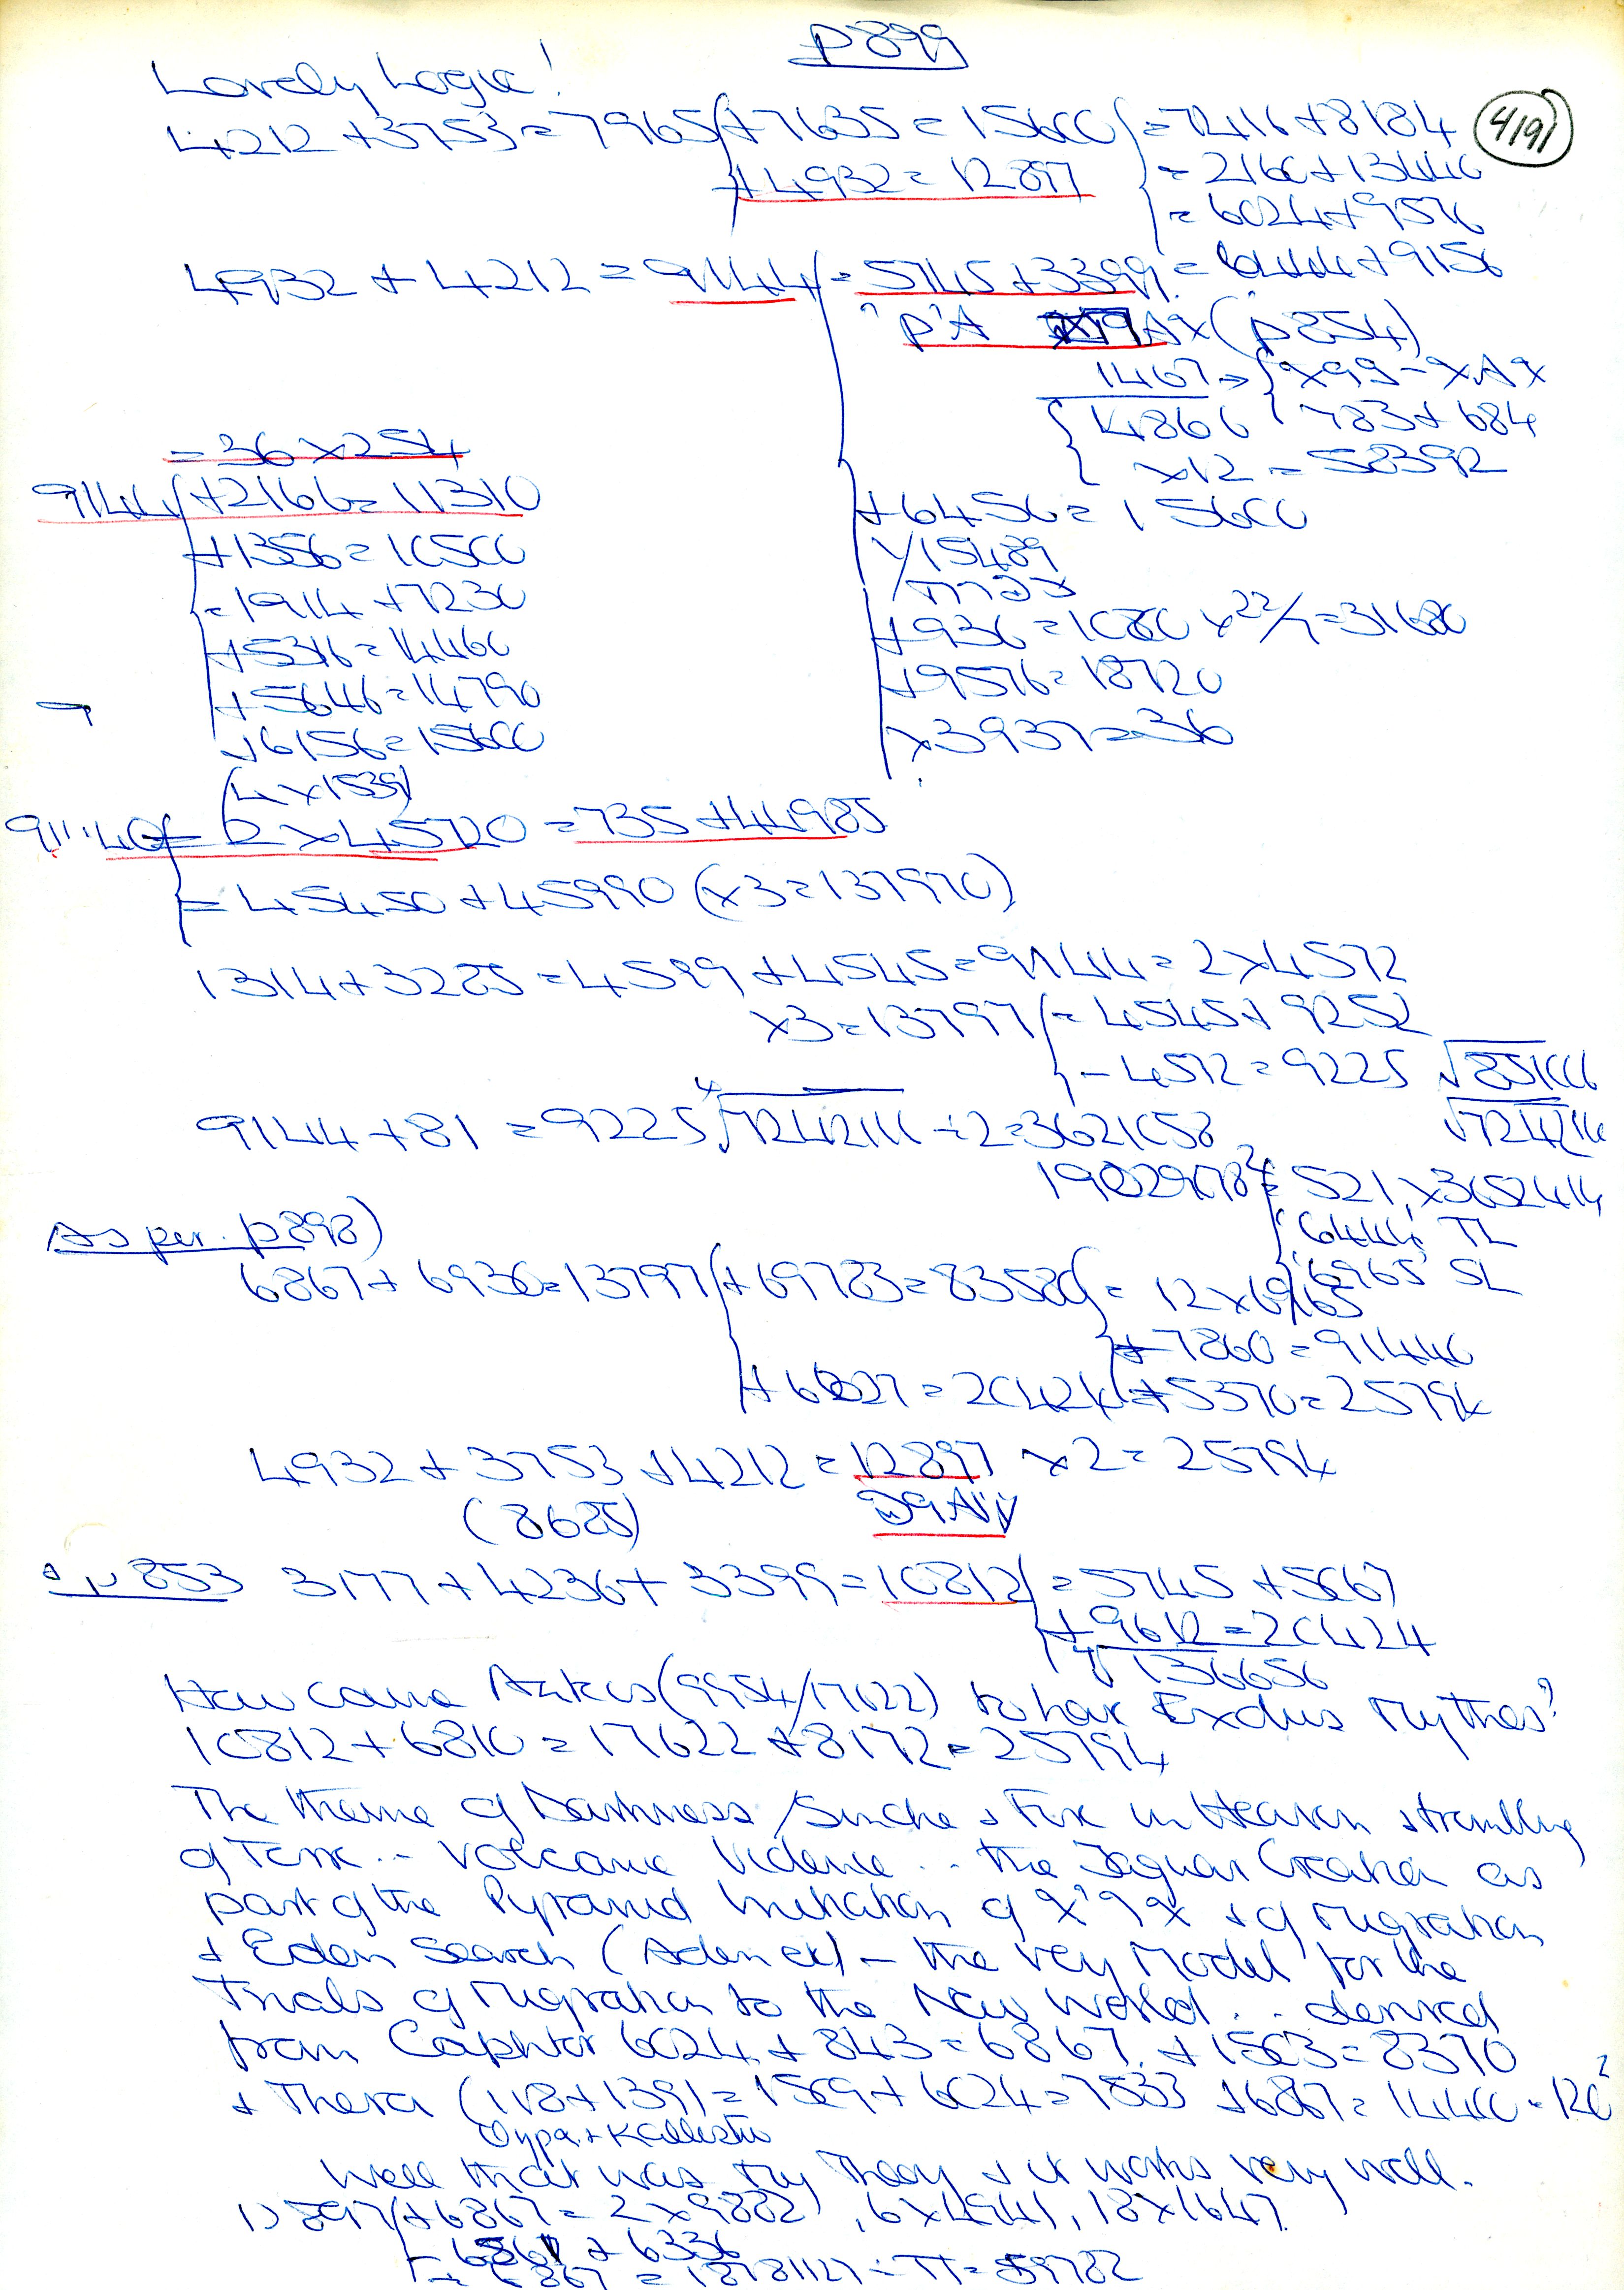 p899
Lovely Logic!
4191
4212 + 3753 = 7965 + 7635 = 15600 = 7416 + 8184
+ 4932 = 12897 = 2160 + 13440
= 6024 + 9576
4932 + 4212 = 9144 = 5745 + 3399 = 6444 + 9156
(p854)
1467
14866 783 + 684
x12 = 58392
= 36 x 254
9144 + 2166 = 11310
+ 6456 = 15600
+ 1356 = 10500
√15489
= 1914 + 7230
+ 936 = 1080 x 22/7 = 31680
+ 5316 = 14460
+ 9576 = 18720
+ 5646 = 14790
x 3937 = 36
+ 6156 = 15600
(4 x 1539)
= 2 x 45720 = 735 + 44985
= 45450 + 45990 (x3 = 137970)
1314 + 3285 = 4599 + 4545 = 9144 = 2 x 4572
x3 = 13797 = 4545 + 9252
- 4572 = 9225
9144 + 81 = 9225 ÷ 2 = 3621058
521 x 3652414
6444 TL
6965 SL
As per p898)
6867 + 6930 = 13797 + 69783 = 83580 = 12 x 6965
+ 7860 = 91440
+ 6627 = 20424 + 5370 = 25794
4932 + 3753 + 4212 = 12897 x 2 = 25794
(8685)
p853 3177 + 4236 + 3399 = 10812 = 5745 + 5067
+ 9612 = 20424
√136656
How come Aztecs (9954/17622) to have Exodus Mythes?
10812 + 6810 = 17622 + 8172 = 25794
The theme of Darkness/Smoke + Fire in Heaven + trembling
of Terra .. Volcanic Violence .. the Jaguar Creation as
part of the Pyramid imitation of + of Migration
+ Eden Search (Aden etc) - the very Model for the
Trials of Migration to the New World .. derived
from Caphtor 6024 + 843 = 6867. + 1503 = 8370
+ Thera (118 + 1391 = 1509 + 6024 = 7533 + 6867 = 14400 = 120²
Θηρα + Kallisto
Well that was my Theory + it works very well.
12897 + 6867 = 2 x 9882, 6 x 4941, 18 x 1647
+ 6336